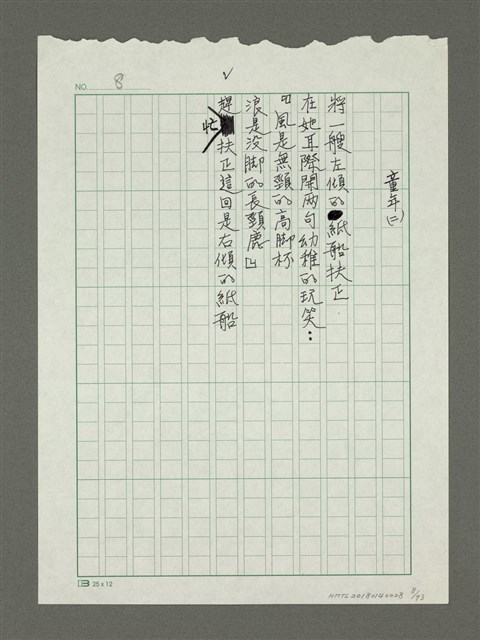 NO. 8
✓
童年(二)
將一艘左傾的紙船扶正
在她耳際開兩句幼稚的玩笑：
『風是無頸的高脚杯
浪是没脚的長頸鹿』
趕忙扶正這回是右傾的紙船
25x12
NMTL20180140008 8/93